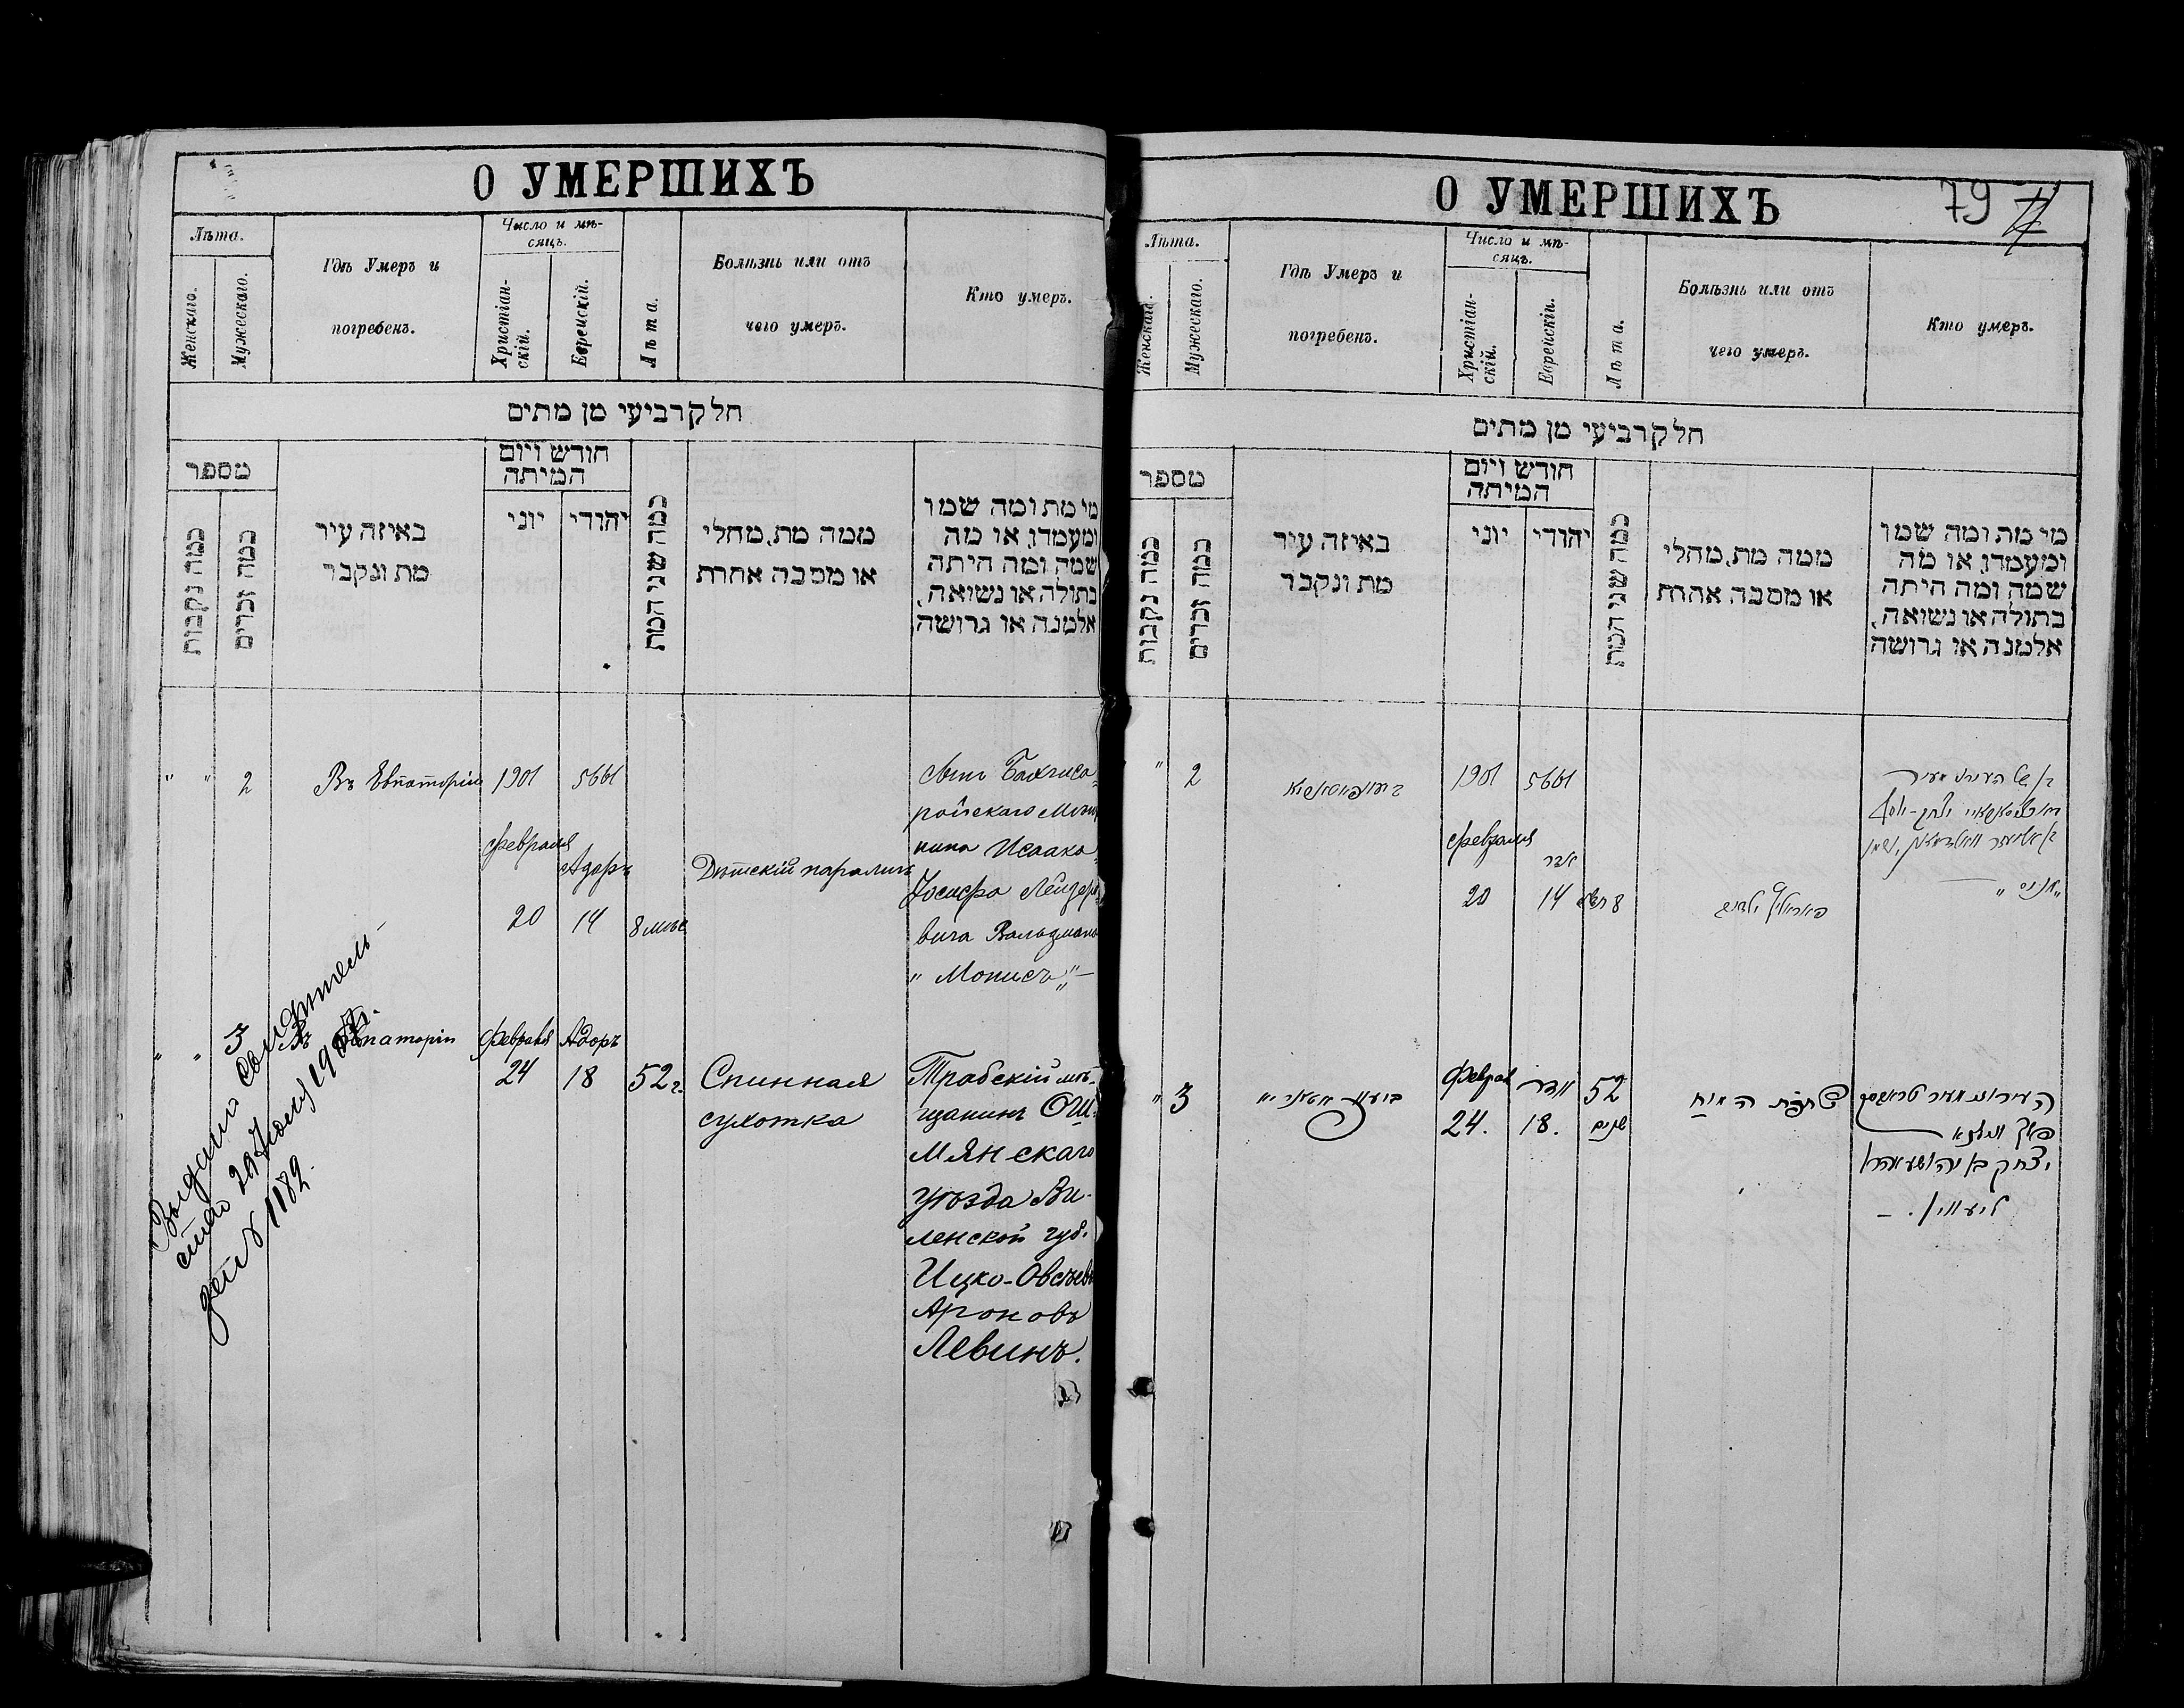 О УМЕРШИХЪ
Лѣта.
Женскаго.
Мужескаго.
Гдѣ Умеръ и
погребенъ.
Число и мѣ-
сяцъ.
Христіан-
скій.
Еврейскій.
Лѣта.
Болѣзнь или отъ
чего умеръ.
Кто умеръ.
חלק רביעי מן מתים
מספר
כמה נקבות
כמה זכרים
באיזה עיר
מת ונקבר
חודש ויום
המיתה
יוני
יהודי
כמה שני המת
ממה מת, מחלי
או מסבה אחרת
מי מת ומה שמו
ומעמדו, או מה
שמה ומה היתה
בתולה או נשואה,
אלמנה או גרושה
" " 2
Въ Евпаторіи
1901
Февраля
20
5661
Адоръ
14
8 мѣс
Дѣтскій параличъ
Сынъ Бахчиса-
райскаго Мѣщ
нина Исаака-
Іосифа Лейзеро
вича Вальдмана
„ Монисъ „ —
" " 3
Въ Евпаторіи
Февраля
24
Адоръ
18
52 г.
Спинная
сухотка
Трабскій мѣ-
щанинъ Ош-
мянскаго
уѣзда Ви-
ленской губ.
Ицко-Овсѣев
Ароновъ
Левинъ.
Выдано свидѣтель-
ство
1182
О УМЕРШИХЪ
79
Лѣта.
Женскаго.
Мужескаго.
Гдѣ Умеръ и
погребенъ.
Число и мѣ-
сяцъ.
Христіан-
скій.
Еврейскій.
Лѣта.
Болѣзнь или отъ
чего умеръ.
Кто умеръ.
חלק רביעי מן מתים
מספר
כמה נקבות
כמה זכרים
באיזה עיר
מת ונקבר
חודש ויום
המיתה
יוני
יהודי
כמה שני המת
ממה מת, מחלי
או מסבה אחרת
מי מת ומה שמו
ומעמדו, או מה
שמה ומה היתה
בתולה או נשואה,
אלמנה או גרושה
" 2
1901
Февраля
20
5661
אדר
14
8
" 3
Феврал
24.
אדר
18.
52
שנים
שחפת המוח
יצחק